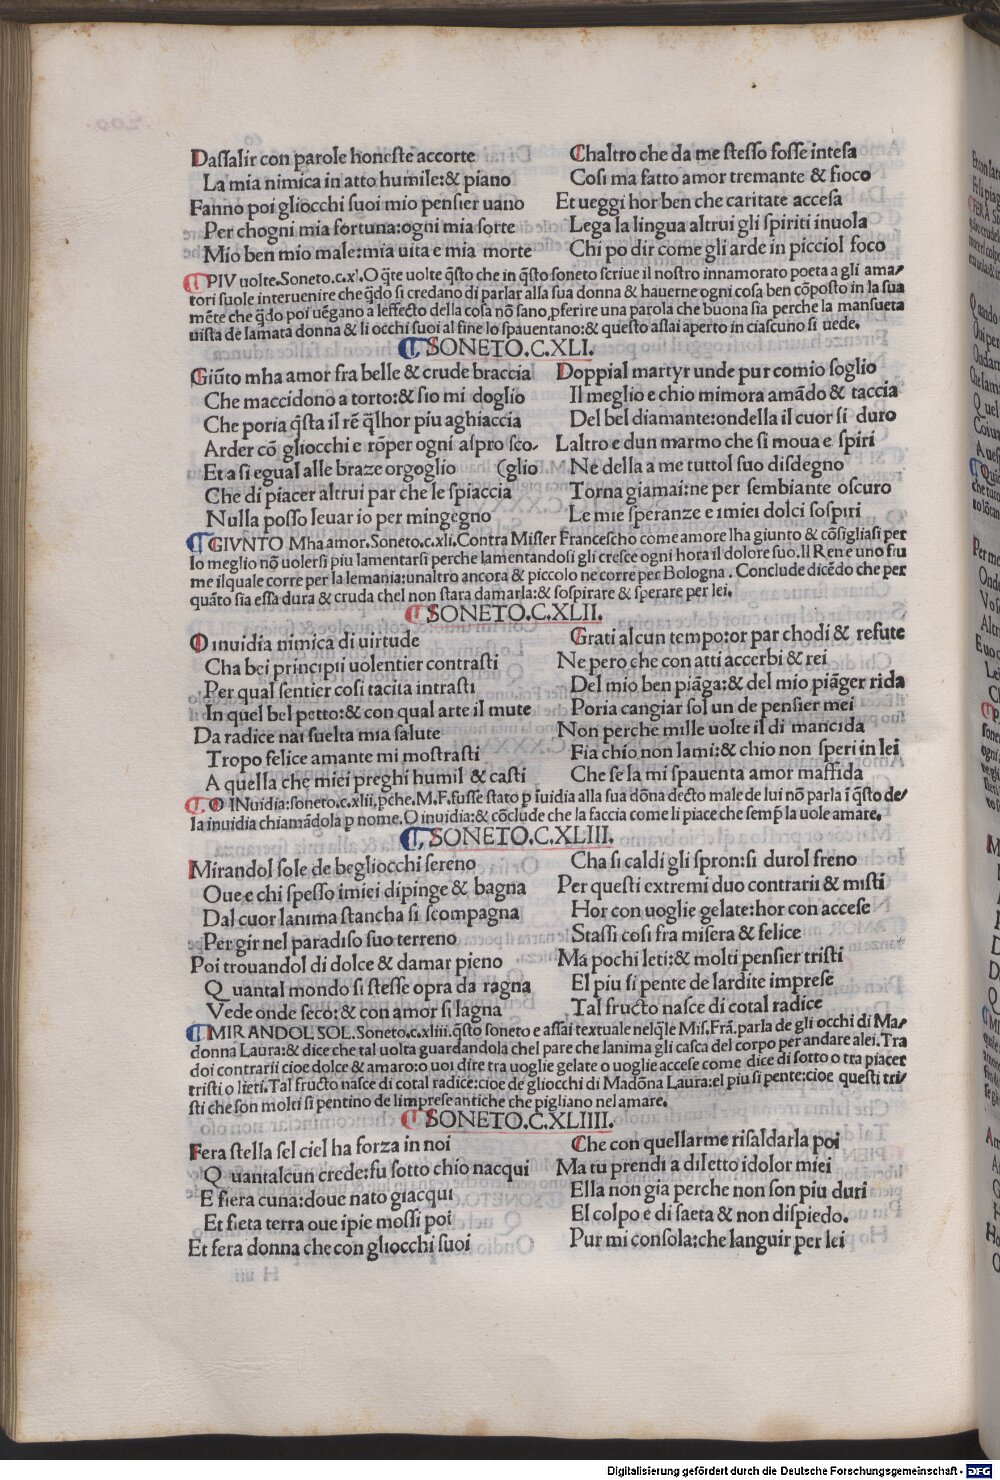 Daſſalir con parole honeſte accorte
La mia nimica in atto humile:& piano
Fanno poi gliocchi ſuoi mio penſier uano
Per chogni mia fortuna:ogni mia ſorte
Mio ben mio male:mia uita e mia morte
Chaltro che da me ſteſſo foſſe inteſa
Coſi ma fatto amor tremante & fioco
Et ueggi hor ben che caritate acceſa
Lega la lingua altrui gli ſpiriti inuola
Chi po dir come gli arde in picciol foco
PIV uolte.Soneto.c.xl.O q̃te uolte q̃ſto che in q̃ſto ſoneto ſcriue il noſtro innamorato poeta a gli ama/
tori ſuole interuenire che q̃do ſi credano di parlar alla ſua donna & hauerne ogni coſa ben cõpoſto in la ſua
mẽte che q̃do poi uẽgano a leffecto della coſa nõ ſano,pferire una parola che buona ſia perche la manſueta
uiſta de lamata donna & li occhi ſuoi al fine lo ſpauentano:& queſto aſſai aperto in ciaſcuno ſi uede.
SONETO.C.XLI.
Giũto mha amor fra belle & crude braccia
Che maccidono a torto:& ſio mi doglio
Che poria q̃ſta il rẽ q̃lhor piu aghiaccia
Arder cõ gliocchi e rõper ogni aſpro ſco-
Et a ſi egual alle braze orgoglio (glio
Che di piacer altrui par che le ſpiaccia
Nulla poſſo leuar io per mingegno
Doppial martyr unde pur comio ſoglio
Il meglio e chio mimora amãdo & taccia
Del bel diamante:ondella il cuor ſi duro
Laltro e dun marmo che ſi moua e ſpiri
Ne della a me tuttol ſuo diſdegno
Torna giamai:ne per ſembiante oſcuro
Le mie ſperanze e imiei dolci ſoſpiri
GIVNTO Mha amor.Soneto.c.xli.Contra Miſſer Franceſcho come amore lha giunto & cõſigliaſi per
lo meglio nõ uolerſi piu lamentarſi perche lamentandoſi gli creſce ogni hora il dolore ſuo.Il Ren e uno fiu
me il quale corre per la lemania:unaltro ancora & piccolo ne corre per Bologna . Conclude dicẽdo che per
quãto ſia eſſa dura & cruda chel non ſtara damarla:& ſoſpirare & ſperare per lei.
SONETO.C.XLII.
O inuidia nimica di uirtude
Cha bei principii uolentier contraſti
Per qual ſentier coſi tacita intraſti
In quel bel petto:& con qual arte il mute
Da radice nai ſuelta mia ſalute
Tropo felice amante mi moſtraſti
A quella che miei preghi humil & caſti
Grati alcun tempo:or par chodi & refute
Ne pero che con atti accerbi & rei
Del mio ben piãga:& del mio piãger rida
Poria cangiar ſol un de penſier mei
Non perche mille uolte il di mancida
Fia chio non lami:& chio non ſperi in lei
Che ſe la mi ſpauenta amor maſſida
O INuidia:ſoneto.c.xlii.pche.M.F.fuſſe ſtato p ĩuidia alla ſua dõna decto male de lui nõ parla ĩ q̃ſto de/
la inuidia chiamãdola p nome.O inuidia:& cõclude che la faccia come li piace che ſemp̃ la uole amare.
SONETO.C.XLIII.
Mirandol ſole de begliocchi ſereno
Oue e chi ſpeſſo imiei dipinge & bagna
Dal cuor lanima ſtancha ſi ſcompagna
Per gir nel paradiſo ſuo terreno
Poi trouandol di dolce & damar pieno
Quantal mondo ſi ſteſſe opra da ragna
Vede onde ſeco: & con amor ſi lagna
Cha ſi caldi gli ſpron:ſi durol freno
Per queſti extremi duo contrarii & miſti
Hor con uoglie gelate:hor con acceſe
Staſſi coſi fra miſera & felice
Ma pochi leti:& molti penſier triſti
El piu ſi pente de lardite impreſe
Tal fructo naſce di cotal radice
MIRANDOL SOL.Soneto.c.xliii.q̃ſto ſoneto e aſſai textuale nelq̃le Miſ.Frã.parla de gli occhi di Ma/
donna Laura:& dice che tal uolta guardandola chel pare che lanima gli caſca del corpo per andare alei.Tra
doi contrarii cioe dolce & amaro:o uoi dire tra uoglie gelate o uoglie acceſe come dice di ſotto o tra piacer
triſti o lieti.Tal fructo naſce di cotal radice:cioe de gliocchi di Madõna Laura:el piu ſi pente:cioe queſti tri/
ſti che ſon molti ſi pentino de limpreſe antiche che pigliano nel amare.
SONETO.C.XLIIII.
Fera ſtella ſel ciel ha forza in noi
Quantalcun crede:fu ſotto chio nacqui
E fiera cuna:doue nato giacqui
Et fieta terra oue ipie moſſi poi
Et fera donna che con gliocchi ſuoi
Che con quellarme riſaldarla poi
Ma tu prendi a diletto idolor miei
Ella non gia perche non ſon piu duri
El colpo e di ſaeta & non diſpiedo.
Pur mi conſola:che languir per lei
Digitalisierung gefördert durch die Deutsche Forschungsgemeinschaft - DFG